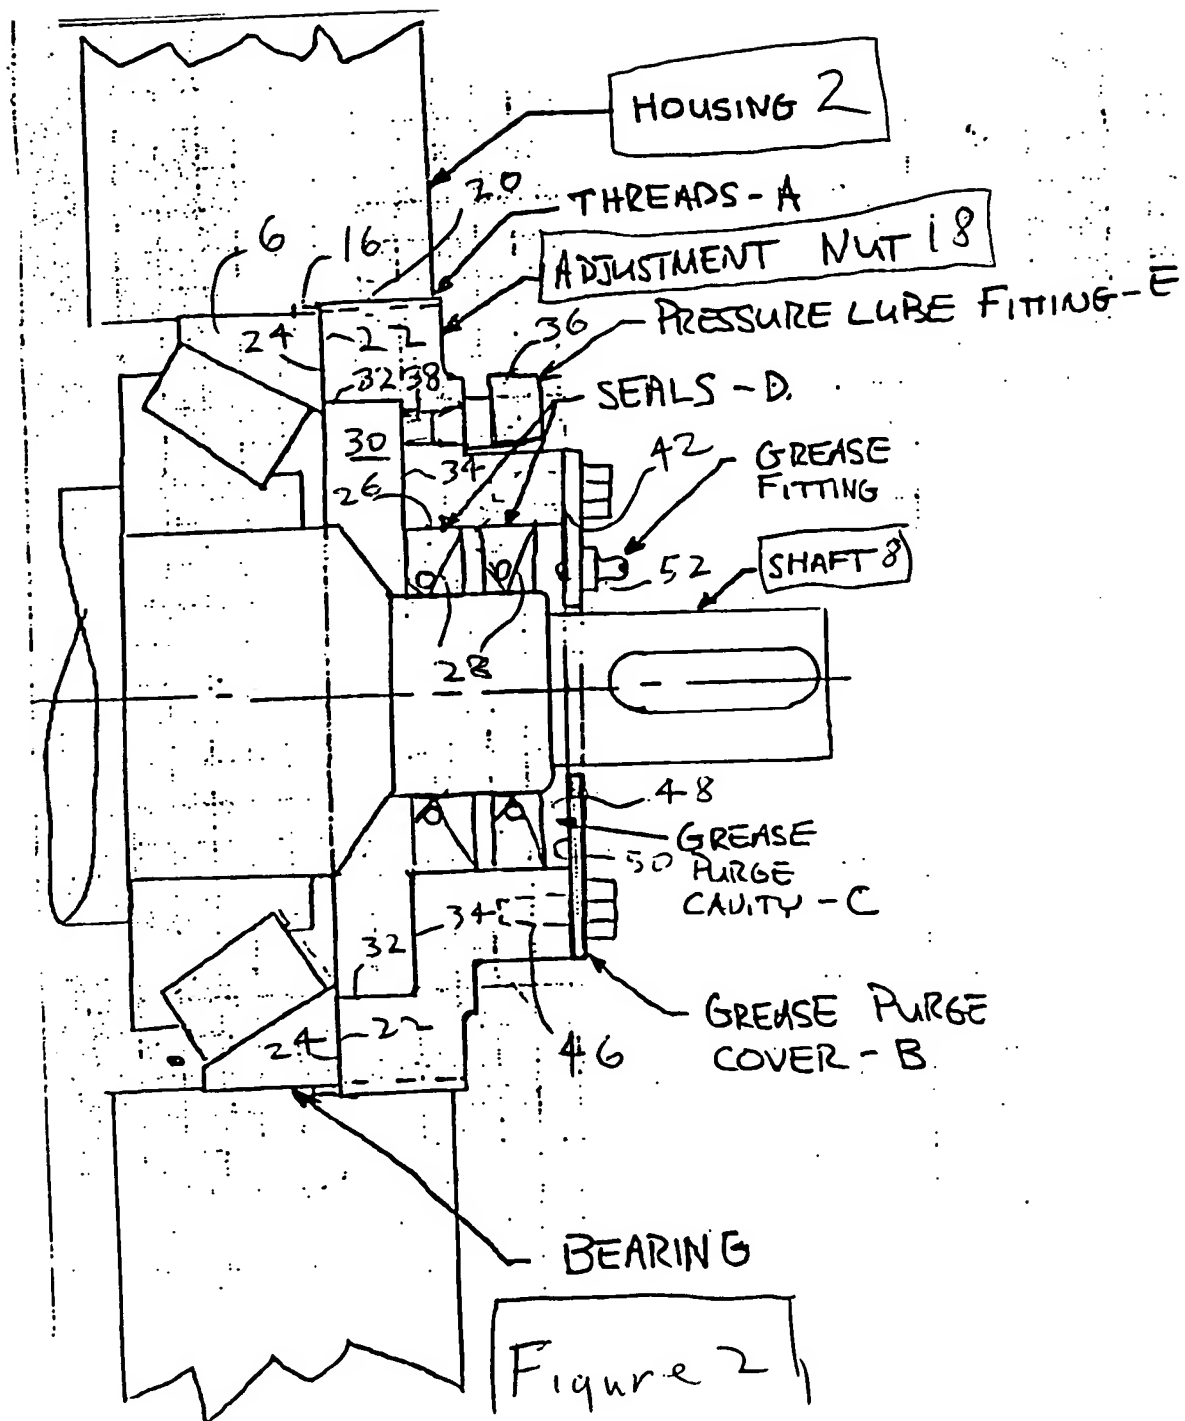 HOUSING 2
20
THREADS-A
6
16
ADJUSTMENT NUT 18
PRESSURE LUBE FITTING-E
36
24
22
32
38
SEALS-D.
30
34
42
GREASE
FITTING
26
52
SHAFT 8
28
48
GREASE
PURGE
CAVITY-C
50
34
32
GREASE PURGE
COVER-B
24
22
46
BEARING
Figure 2